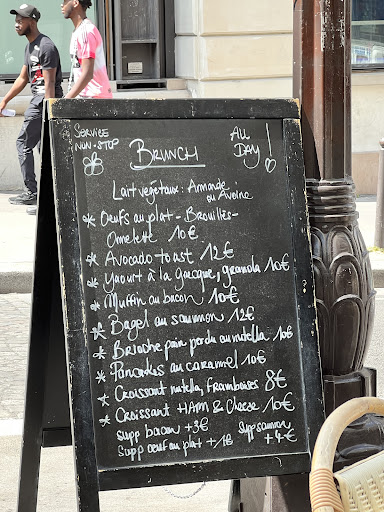 SERVICE
NON-STOP
BRUNCH
ALL
DAY!
Lait végétaux: Amande
ou Avoine
* Oeufs au plat - Brouillés -
Omelette 10€
* Avocado toast 12€
* Yaourt à la grecque, granola 10€
* Muffin au bacon 10€
* Bagel au saumon 12€
* Brioche pain perdu au nutella 10€
* Pancakes au caramel 10€
* Croissant nutella, Framboises 8€
* Croissant HAM & Cheese 10€
supp bacon +3€
Supp oeuf au plat +1€
Supp saumon
+4€